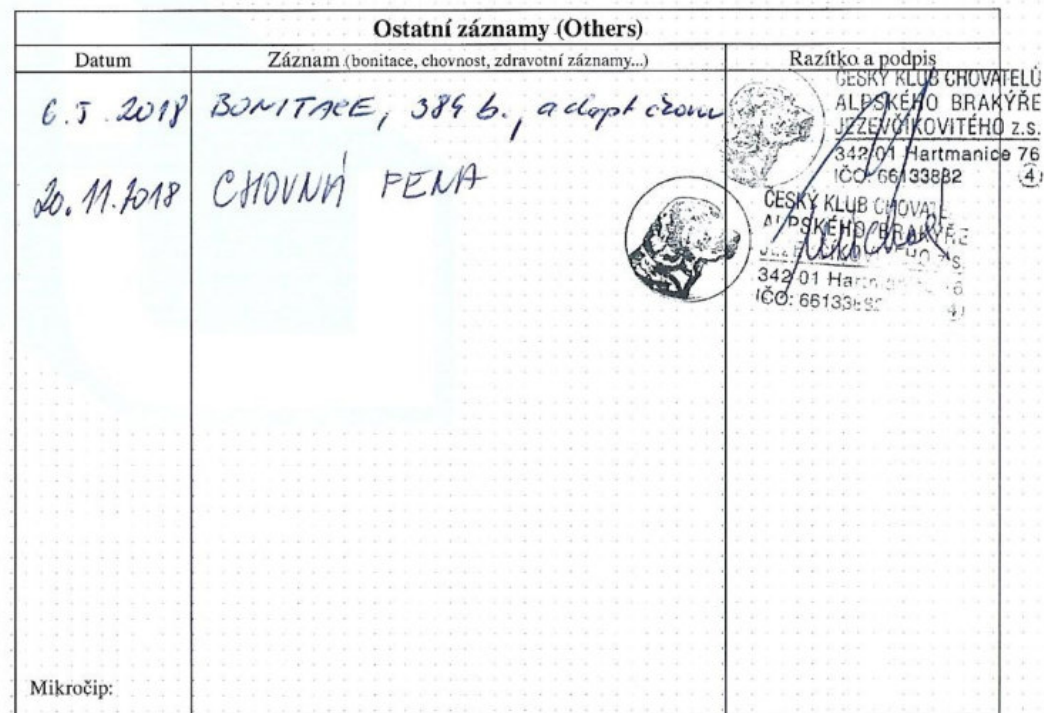 Ostatní záznamy (Others)
Datum Záznam (bonitace, chovnost, zdravotní záznamy...) Razítko a podpis
6.5.2018 BONITACE, 384 b.,
ČESKÝ KLUB CHOVATELŮ
ALPSKÉHO BRAKÝŘE
JEZEVČÍKOVITÉHO z.s.
342 01 Hartmanice 76
IČO: 66133882 4)
20.11.2018 CHOVNÁ FENA
ČESKÝ KLUB
ALPSKÉHO BRAKÝŘE
342 01
IČO: 4)
Mikročip: